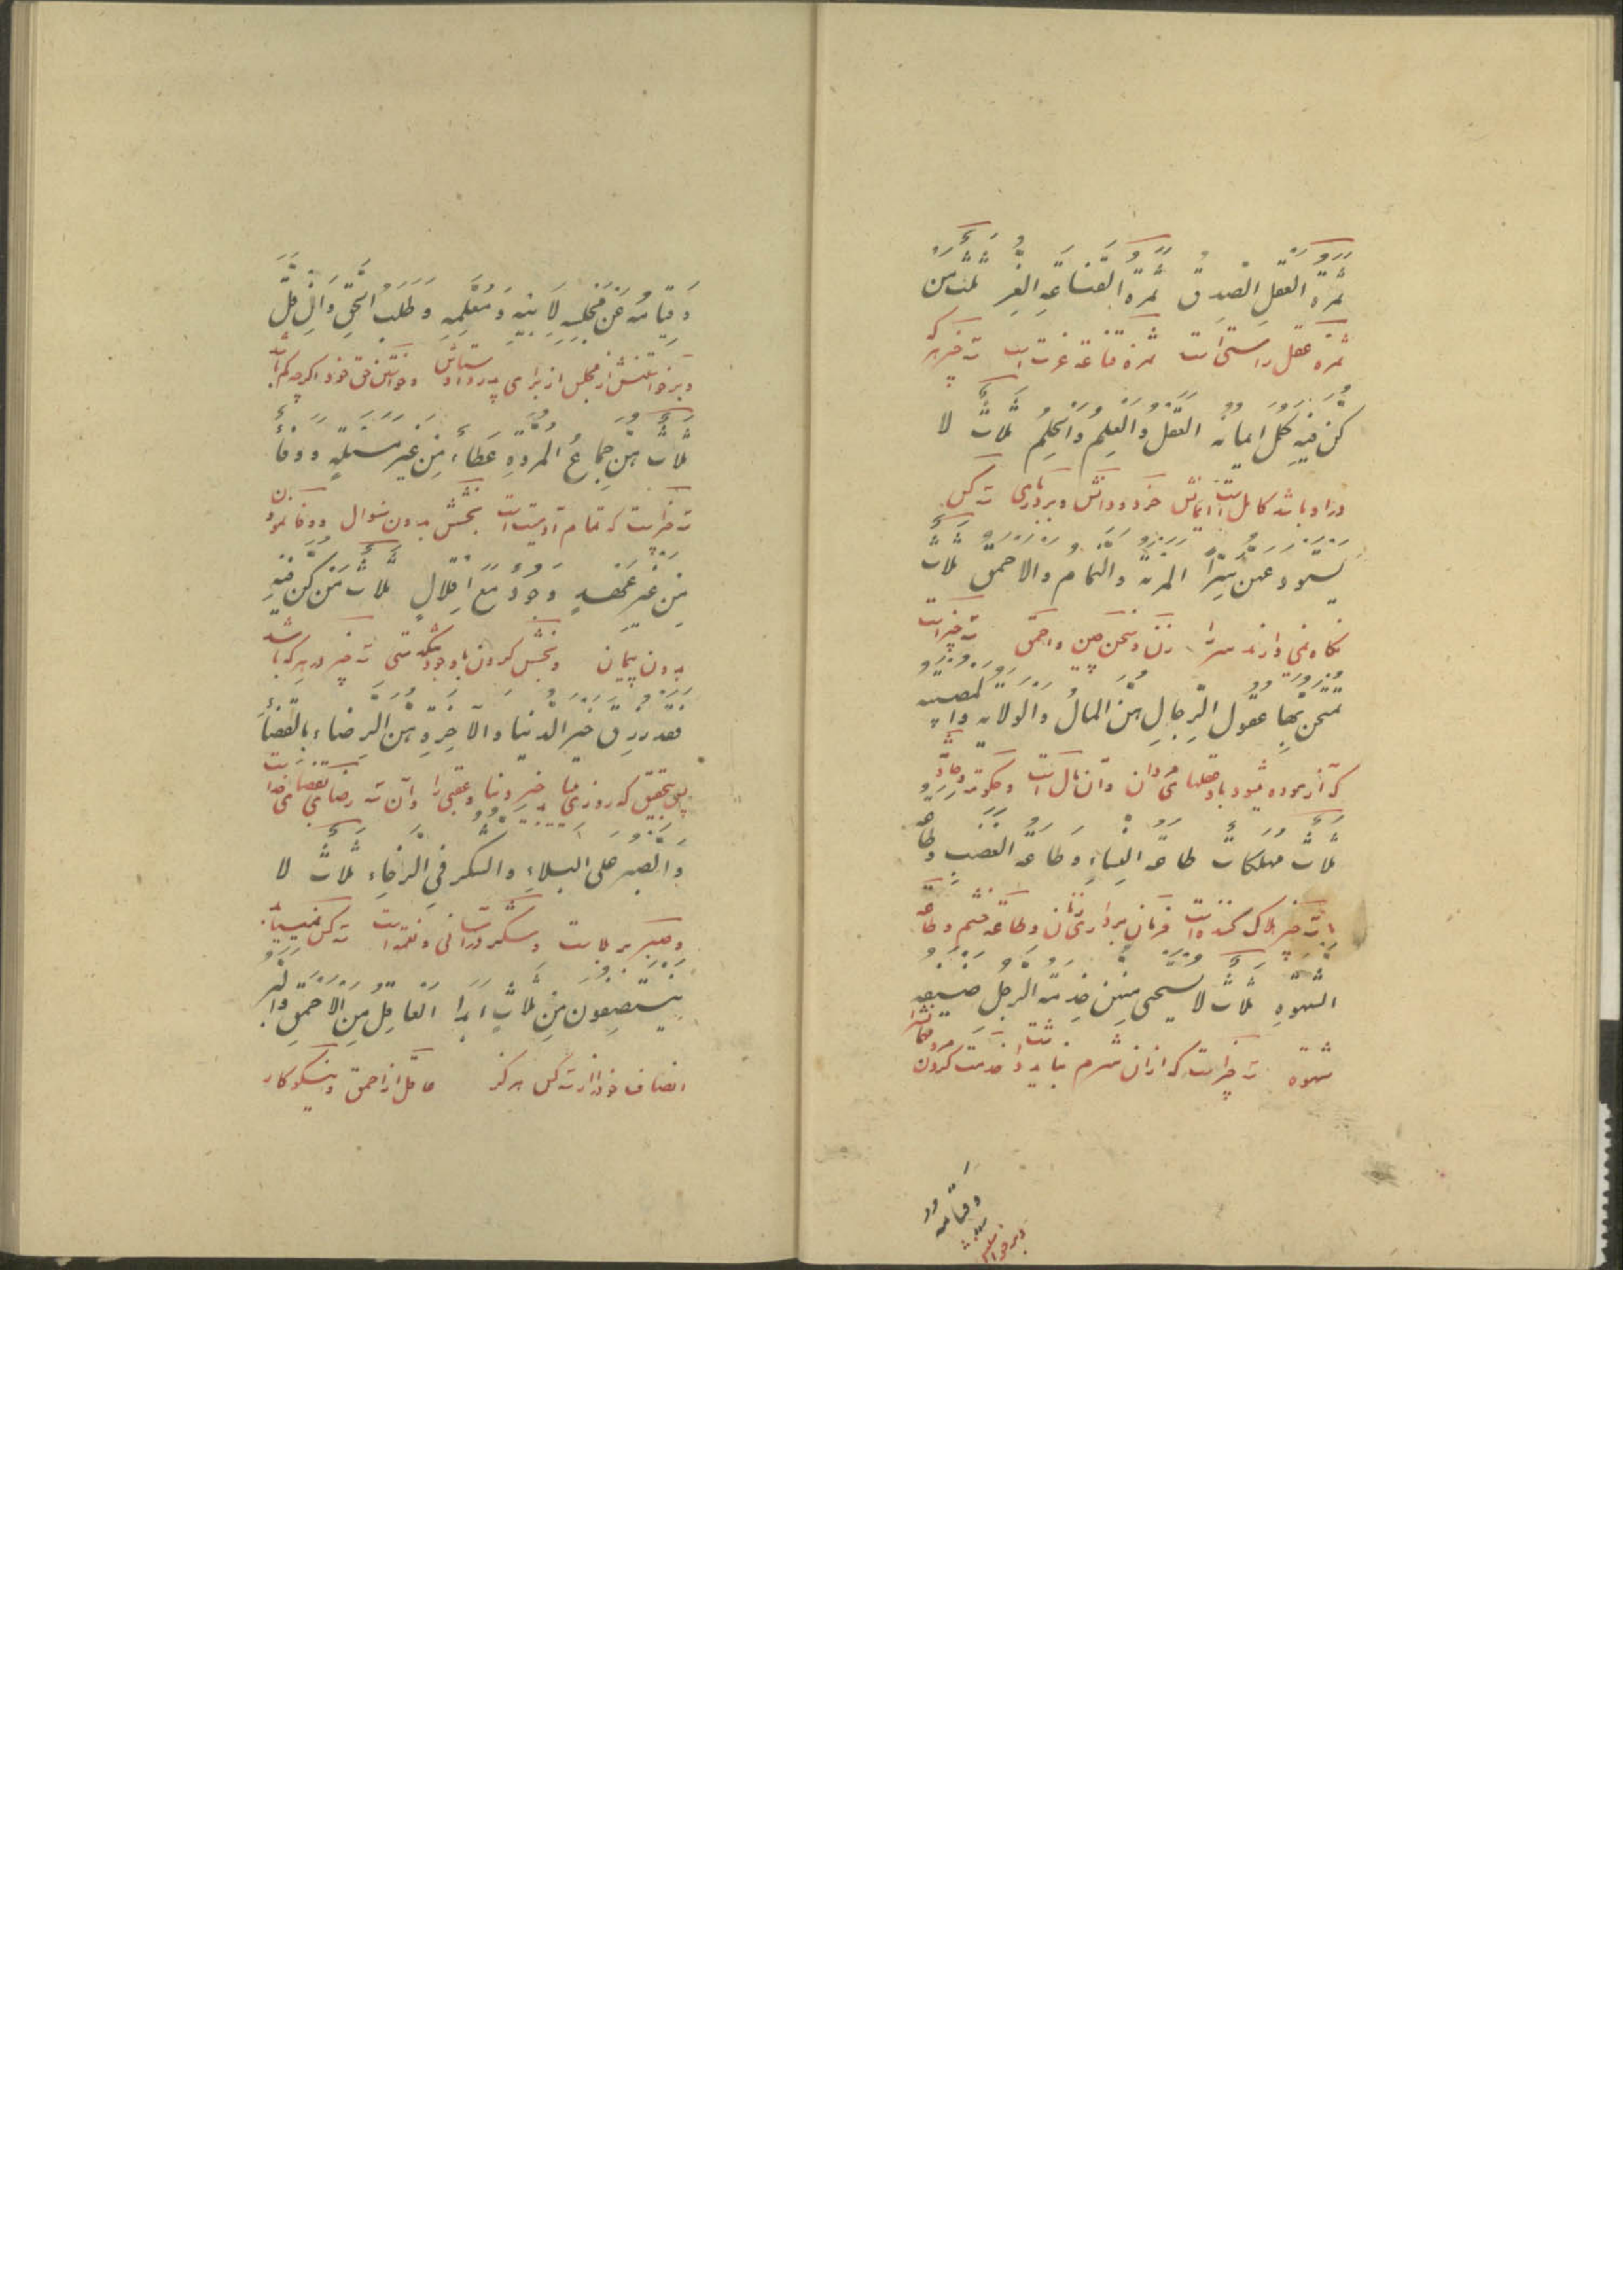 ثَمَرَةُ الْعَقْلِ الصِّدْقُ ثَمَرَةُ الْقَنَاعَةِ الْعِزُّ ثَلَاثٌ مَنْ
ثمره عقل راستی است ثمره قناعه عزت است سه چیز هر که
كُنَّ فِيهِ كَمُلَ إِيمَانُهُ الْعَقْلُ وَالْعِلْمُ وَالْحِلْمُ ثَلَاثٌ لَا
در او باشد کامل است ایمانش خرد و دانش و بردباری سه کس
يُسْتَوْدَعْنَ سِرًّا الْمَرْأَةُ وَالنَّمَّامُ وَالْأَحْمَقُ ثَلَاثٌ
نگاه نمی دارند سر را زن و سخن چین و احمق سه چیز است
يُمْتَحَنُ بِهَا عُقُولُ الرِّجَالِ هُنَّ الْمَالُ وَالْوِلَايَةُ وَالْمُصِيبَةُ
که آزموده میشود باو عقلهای مردان و آن مال است و حکومت
ثَلَاثٌ مُهْلِكَاتٌ طَاعَةُ النِّسَاءِ وَطَاعَةُ الْغَضَبِ وَطَاعَةُ
سه چیز هلاک کننده است فرمان برداری زنان و طاعة خشم و طاعة
الشَّهْوَةِ ثَلَاثٌ لَا يُسْتَحْيَى مِنْهُنَّ خِدْمَةُ الرَّجُلِ ضَيْفَهُ
شهوة سه چیز است که از آن شرم نباید داشت خدمت کردن مرد
وقیامه
وبرخواستنش
وَقِيَامُهُ عَنْ مَجْلِسِهِ لِأَبِيهِ وَمُعَلِّمِهِ وَطَلَبُ الْحَقِّ وَإِنْ قَلَّ
وبرخواستنش از مجلس از برای پدر و استادش وخواستن حق خود اگرچه کم باشد
ثَلَاثٌ هُنَّ جِمَاعُ الْمُرُوَّةِ عَطَاءٌ مِنْ غَيْرِ مَسْئَلَةٍ وَوَفَاءٌ
سه چیز است که تمام آدمیت است بخشش بدون سؤال ووفا نمودن
مِنْ غَيْرِ عَهْدٍ وَجُودٌ مَعَ إِقْلَالٍ ثَلَاثٌ مَنْ كُنَّ فِيهِ
بدون پیمان وبخشش کردن باوجود تنگدستی سه چیز در هر که باشد
فَقَدْ رُزِقَ خَيْرَ الدُّنْيَا وَالْآخِرَةِ هُنَّ الرِّضَاءُ بِالْقَضَاءِ
پس بتحقیق که روزی خیر دنیا وعقبی را وآن سه رضا بقضای خدا
وَالصَّبْرُ عَلَى الْبَلَاءِ وَالشُّكْرُ فِي الرَّخَاءِ ثَلَاثٌ لَا
وصبر بر بلاست وشکر در آسانی ونعمة است سه کس
يَنْتَصِفُونَ مِنْ ثَلَاثٍ أَبَدًا الْعَاقِلُ مِنَ الْأَحْمَقِ وَالْبَرُّ
انصاف خود را از سه کس هرگز عاقل از احمق ونیکوکار